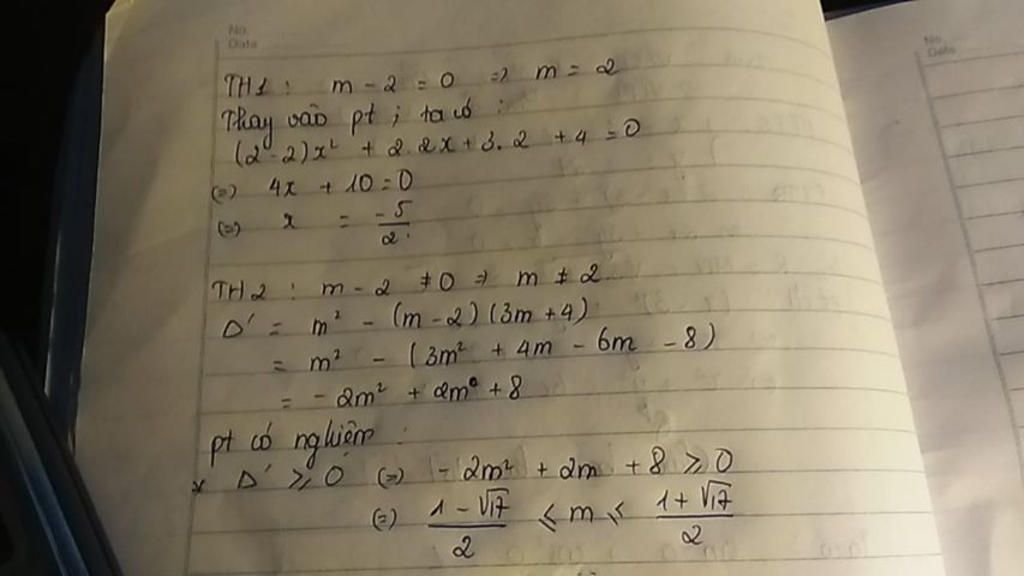 No.
Date
No.
Date
TH1 : m - 2 = 0 => m = 2
Thay vào pt ; ta có :
(2-2)x² + 2.2x + 3.2 + 4 = 0
(=) 4x + 10 = 0
(=) x = -5/2
TH2 : m - 2 ≠ 0 => m ≠ 2
Δ' = m² - (m-2)(3m+4)
= m² - (3m² + 4m - 6m - 8)
= -2m² + 2m + 8
pt có nghiệm :
* Δ' ⩾ 0 (=) -2m² + 2m + 8 ⩾ 0
(=) (1 - √17)/2 ⩽ m ⩽ (1 + √17)/2